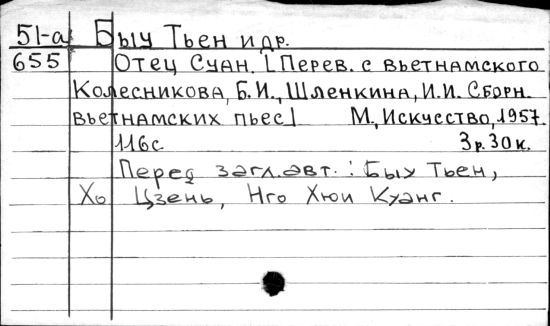 51-а Быу Тьен и др.
655 Отец Суан. [Перев. с вьетнамского
Колесникова, Б.И., Шленкина, И.И. Сборн.
вьетнамских пьес] М., Искусство, 1957.
116 с. 3 р. 30 к.
Перед загл. авт.: Быу Тьен,
Хо Цзень, Нго Хюи Куанг.